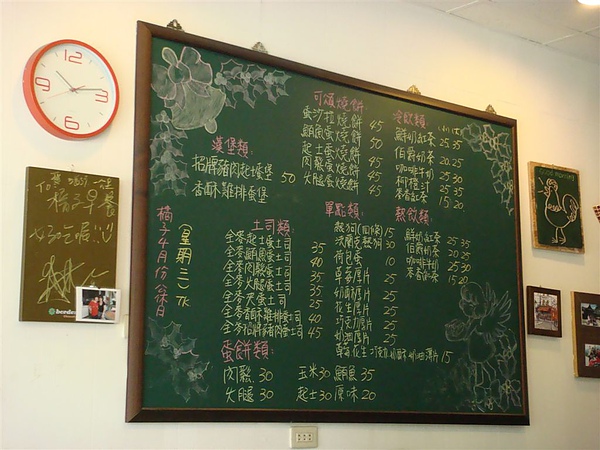 12
3
6
9
橘子早餐
好吃喔!!!
可頌燒餅:
蛋沙拉燒餅 45
鮪魚蛋燒餅 50
起士蛋燒餅 45
肉鬆蛋燒餅 45
火腿蛋燒餅 45
冷飲類:
鮮奶紅茶 25.35
伯爵奶茶 20.25
咖啡牛奶 25.30
柯橙汁 25.35
茶香紅茶 15.20
漢堡類:
招牌豬肉起士蛋堡 50
香酥雞排蛋堡
橘子4月份公休日
(星期三)
土司類:
全麥起士蛋土司 35
全麥鮪魚蛋土司 40
全麥肉鬆蛋土司 35
全麥火腿蛋土司 35
全麥夾蛋土司 25
全麥香酥雞排蛋土司 40
全麥招牌豬肉蛋土司 45
單點類:
熱狗(10條) 15
荷包蛋 10
草莓厚片 25
奶酥厚片 25
花生厚片 25
巧克力厚片 25
奶油厚片 25
薄片 15
熱飲類:
鮮奶紅茶 25 35
伯爵奶茶 20 25
咖啡牛奶 25 30
茶香紅茶 15 20
蛋餅類:
肉鬆 30 玉米 30 鮪魚 35
火腿 30 起士 30 原味 20
Good Morning